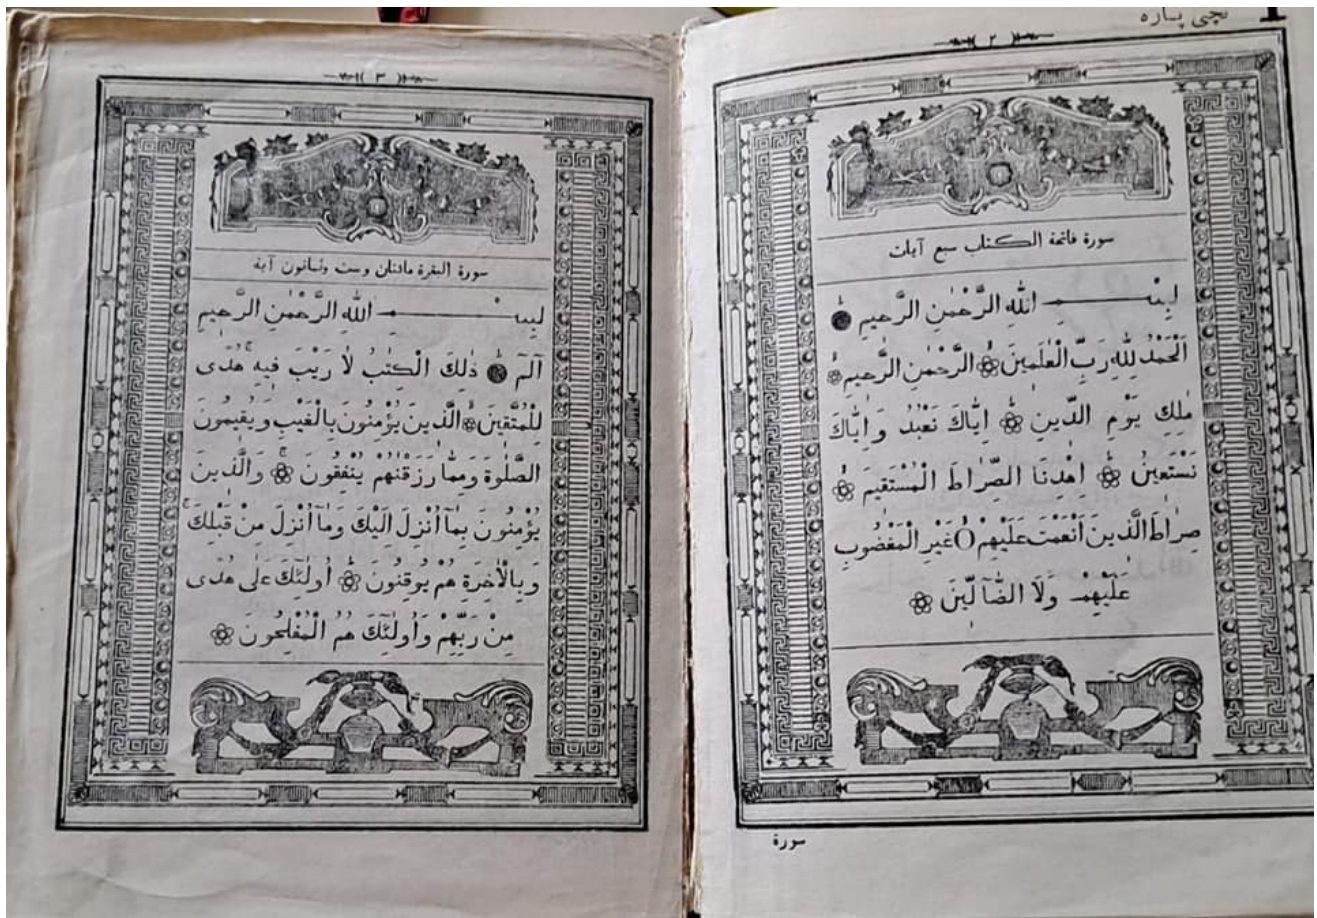 نچی پاره
﴿ ٢ ﴾
سورة فاتحة الكتاب سبع آيات
بِسْمِ اللّٰهِ الرَّحْمٰنِ الرَّحِيمِ
اَلْحَمْدُ لِلّٰهِ رَبِّ الْعٰلَمِينَ الرَّحْمٰنِ الرَّحِيمِ
مٰلِكِ يَوْمِ الدِّينِ اِيَّاكَ نَعْبُدُ وَاِيَّاكَ
نَسْتَعِينُ اِهْدِنَا الصِّرَاطَ الْمُسْتَقِيمَ
صِرَاطَ الَّذِينَ اَنْعَمْتَ عَلَيْهِمْ غَيْرِ الْمَغْضُوبِ
عَلَيْهِمْ وَلَا الضَّآلِّينَ
سورة
﴿ ٣ ﴾
سورة البقرة مائتان وست وثمانون آية
بِسْمِ اللّٰهِ الرَّحْمٰنِ الرَّحِيمِ
آلٓمٓ ذٰلِكَ الْكِتٰبُ لَا رَيْبَ فِيهِ هُدًى
لِلْمُتَّقِينَ الَّذِينَ يُؤْمِنُونَ بِالْغَيْبِ وَيُقِيمُونَ
الصَّلٰوةَ وَمِمَّا رَزَقْنٰهُمْ يُنْفِقُونَ وَالَّذِينَ
يُؤْمِنُونَ بِمَآ اُنْزِلَ اِلَيْكَ وَمَآ اُنْزِلَ مِنْ قَبْلِكَ
وَبِالْاٰخِرَةِ هُمْ يُوقِنُونَ اُولٰٓئِكَ عَلٰى هُدًى
مِنْ رَبِّهِمْ وَاُولٰٓئِكَ هُمُ الْمُفْلِحُونَ